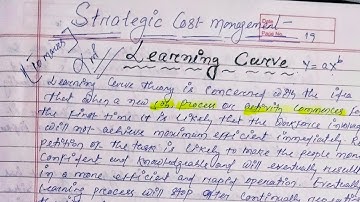 Strategic Cost mangement
Date
Page No. 19
Learning Curve y = ax^b
Learning Curve theory is concerned with the idea
that when a new job process or activity commences for
the first time it is likely that the workforce
will not achieve maximum efficient immediately
petition of the task is likely to make the people more
confident and knowledgeable and will eventually result
in a more efficient and rapid operation.
learning process will stop after continually